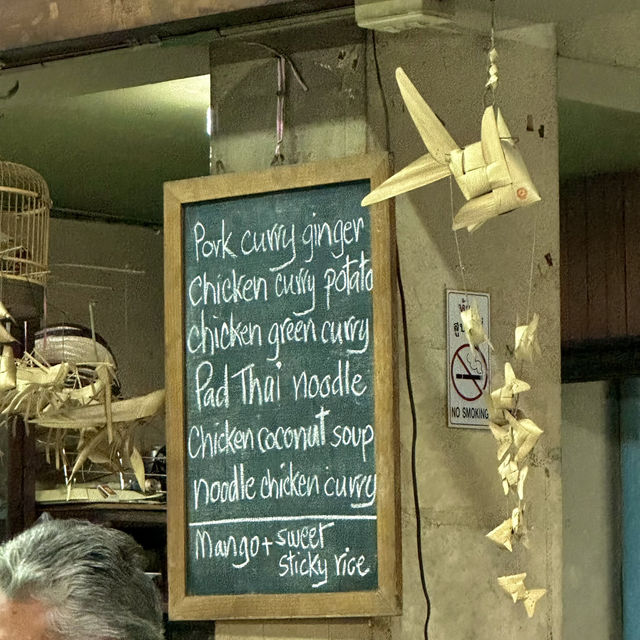 Pork curry ginger
Chicken curry potato
chicken green curry
Pad Thai noodle
Chicken coconut soup
noodle chicken curry
Mango + sweet
sticky rice
NO SMOKING